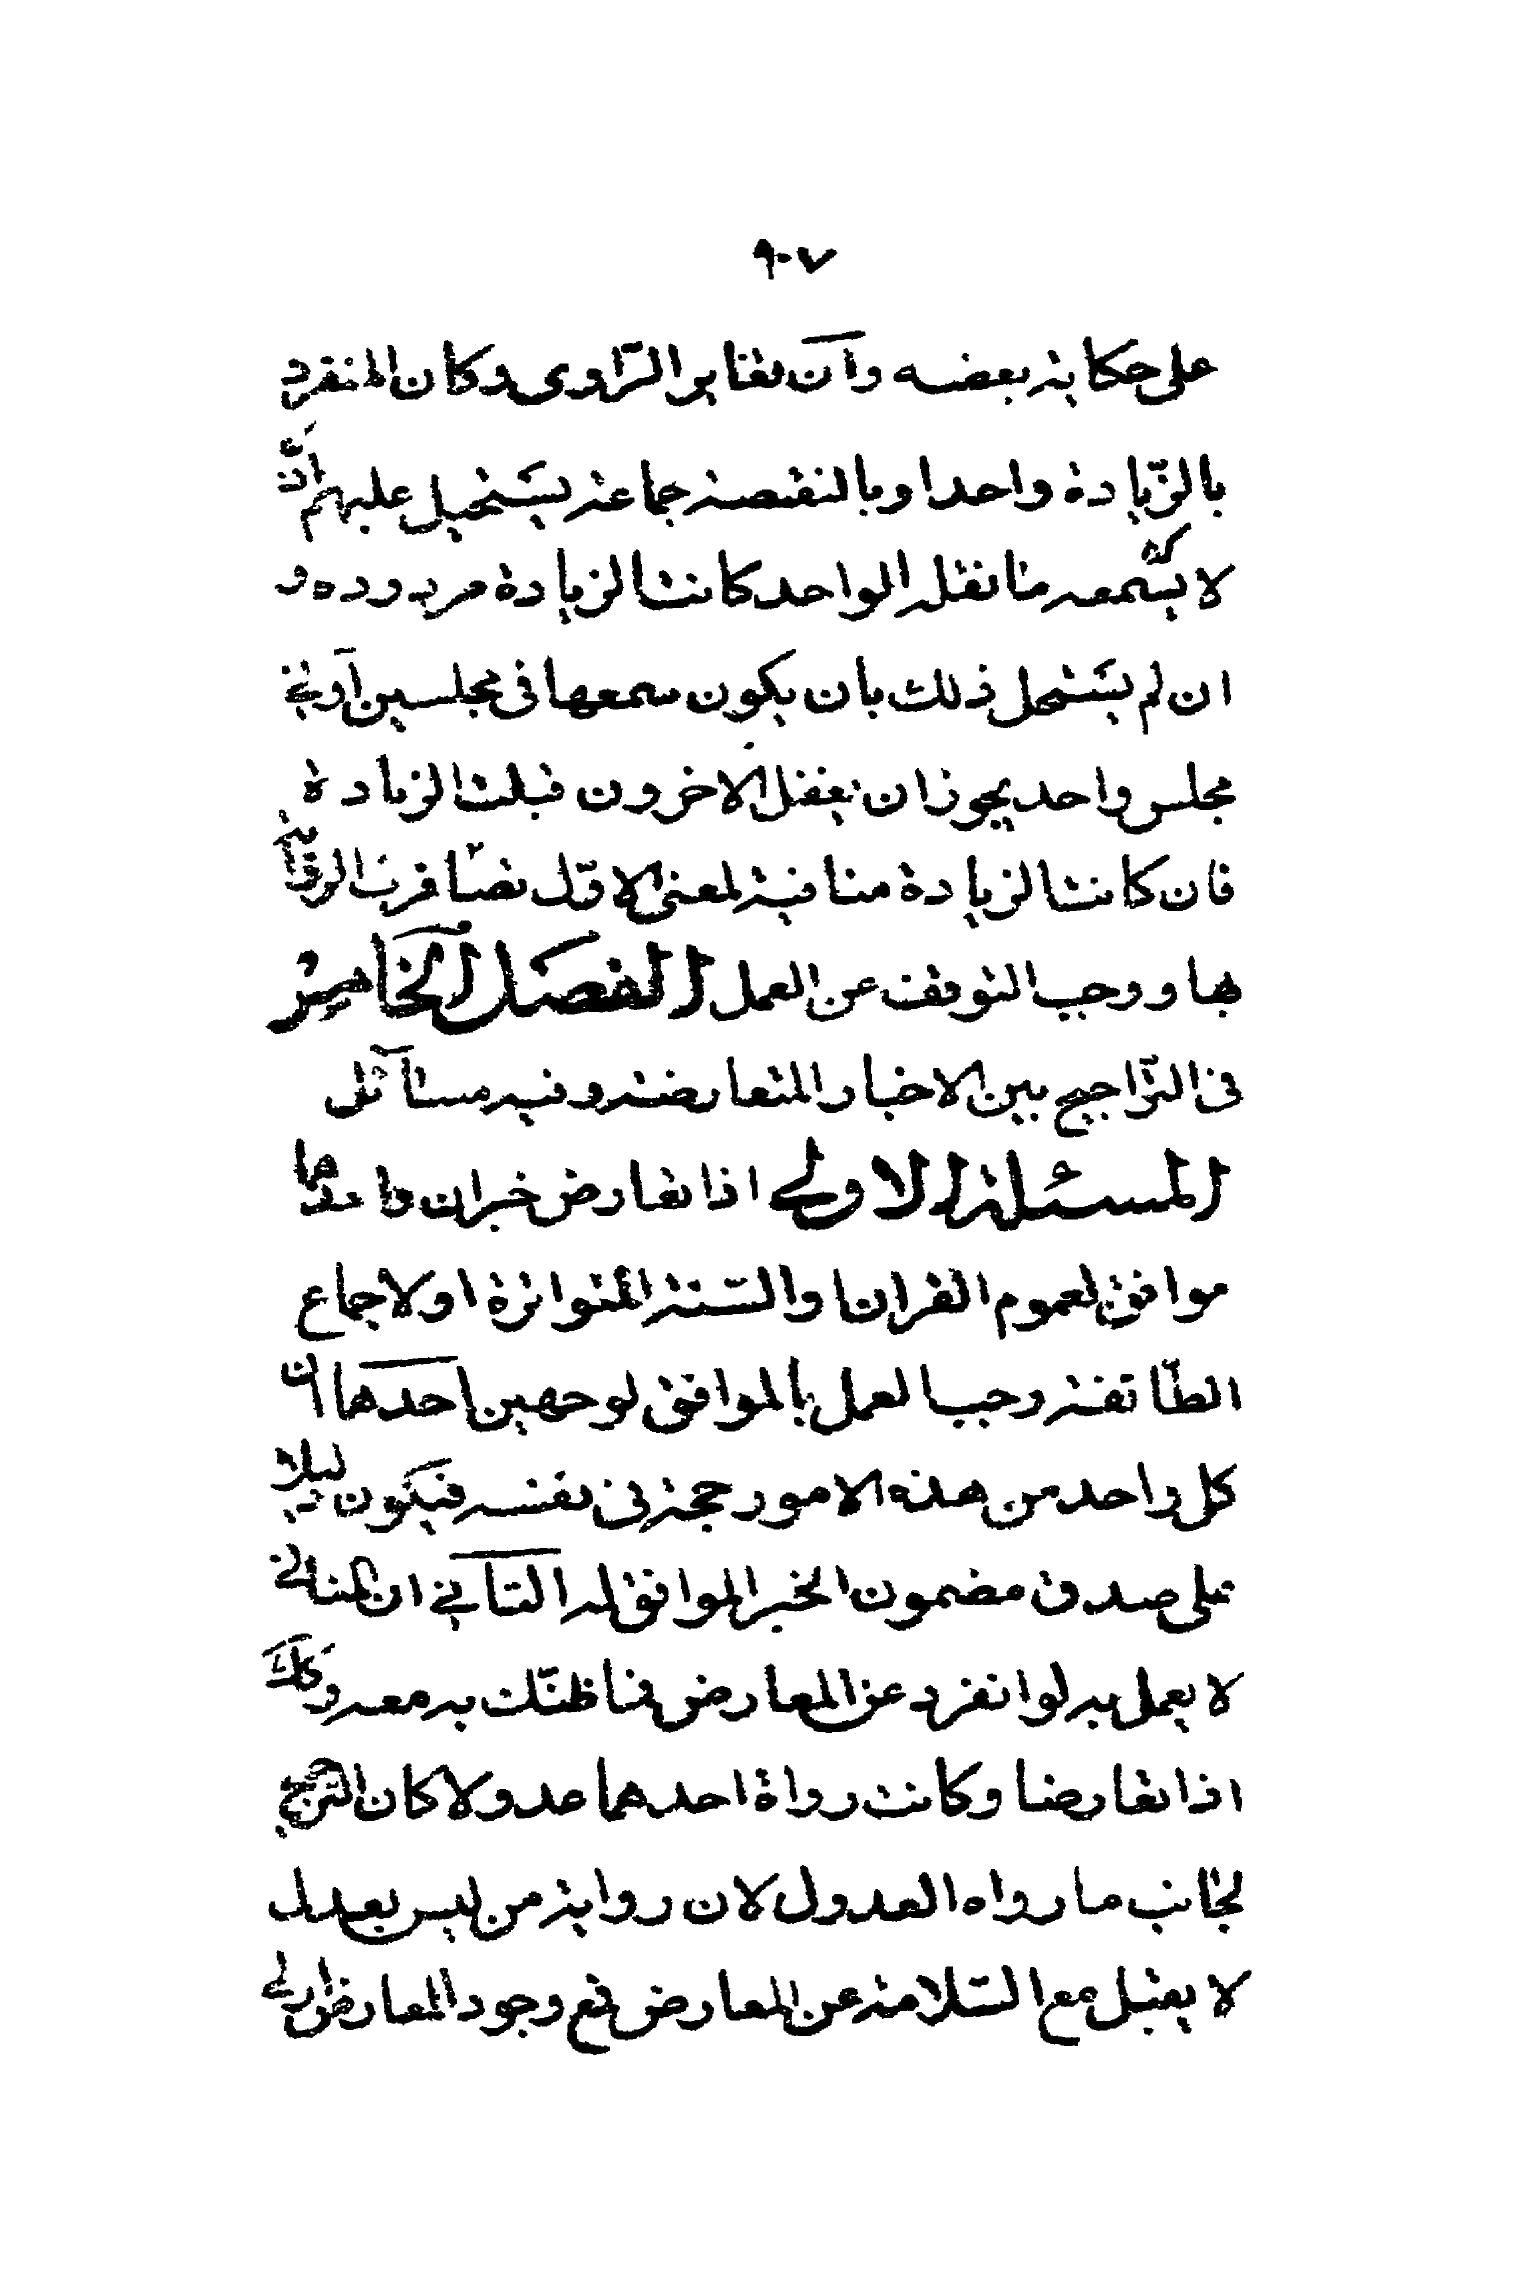 ٩٠٧
على حكاية بعضه وآن تغاير الرّاوى وكان المنفرد
بالزّيادة واحدا وبالنقصية جماعة يستحيل عليهم انّ
لا يسمعه ما نقله الواحد كانت الزيادة مردوده و
ان لم يستحل ذلك بان يكون سمعها فى مجلسين آو فى
مجلس واحد يجوز ان يغفل الاخرون قبلت الزيادة
فان كانت الزيادة منافية لمعنى الاوّل تضافرت
بها ووجب التوقف عن العمل الفصل الخامس
فى التّراجيح بين الاخبار المتعارضة وفيه مسآئل
المسئلة الاولى اذا تعارض خبران واحدهما
موافق لعموم القران او السّنة المتواترة او لاجماع
الطّائفة وجب العمل بالموافق لوجهين احدهما ان
كل واحد من هذه الامور حجة فى نفسه فيكون دليلا
على صدق مضمون الخبر الموافق له الثانى ان المنافى
لا يعمل به لو انفرد عن المعارض فما ظنّك به معه وكك
اذا تعارضا وكانت رواة احدهما عدولا كان الترجيح
لجانب ما رواه العدول لان رواية من ليس بعدل
لا يقبل مع السّلامة عن المعارض فمع وجود المعارض اولى